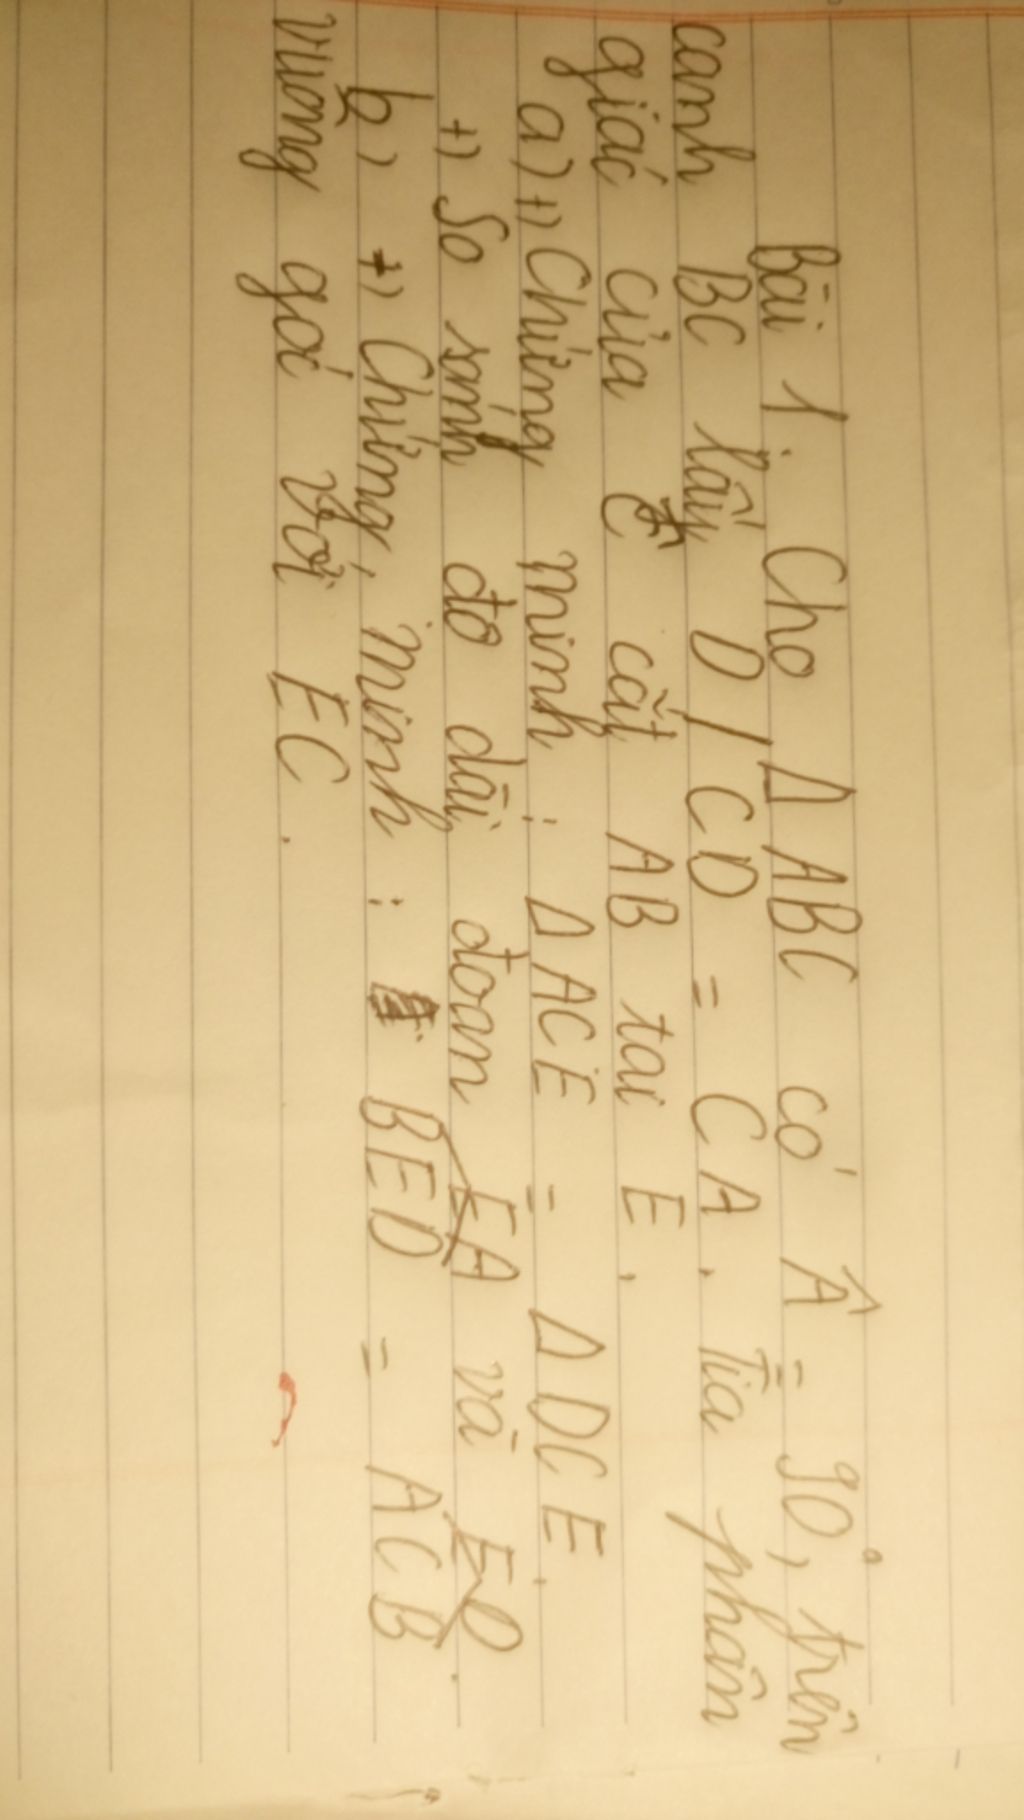 Bài 1. Cho Δ ABC có Â = 90°, trên
canh BC lấy D / CD = CA. Tia phân
giác của Ĉ cắt AB tai E.
a) +) Chứng minh : Δ ACE = Δ DCE.
+) So sánh đô dài đoan EA và ED.
b) +) Chứng minh : BED = ACB
vuông gó với EC.